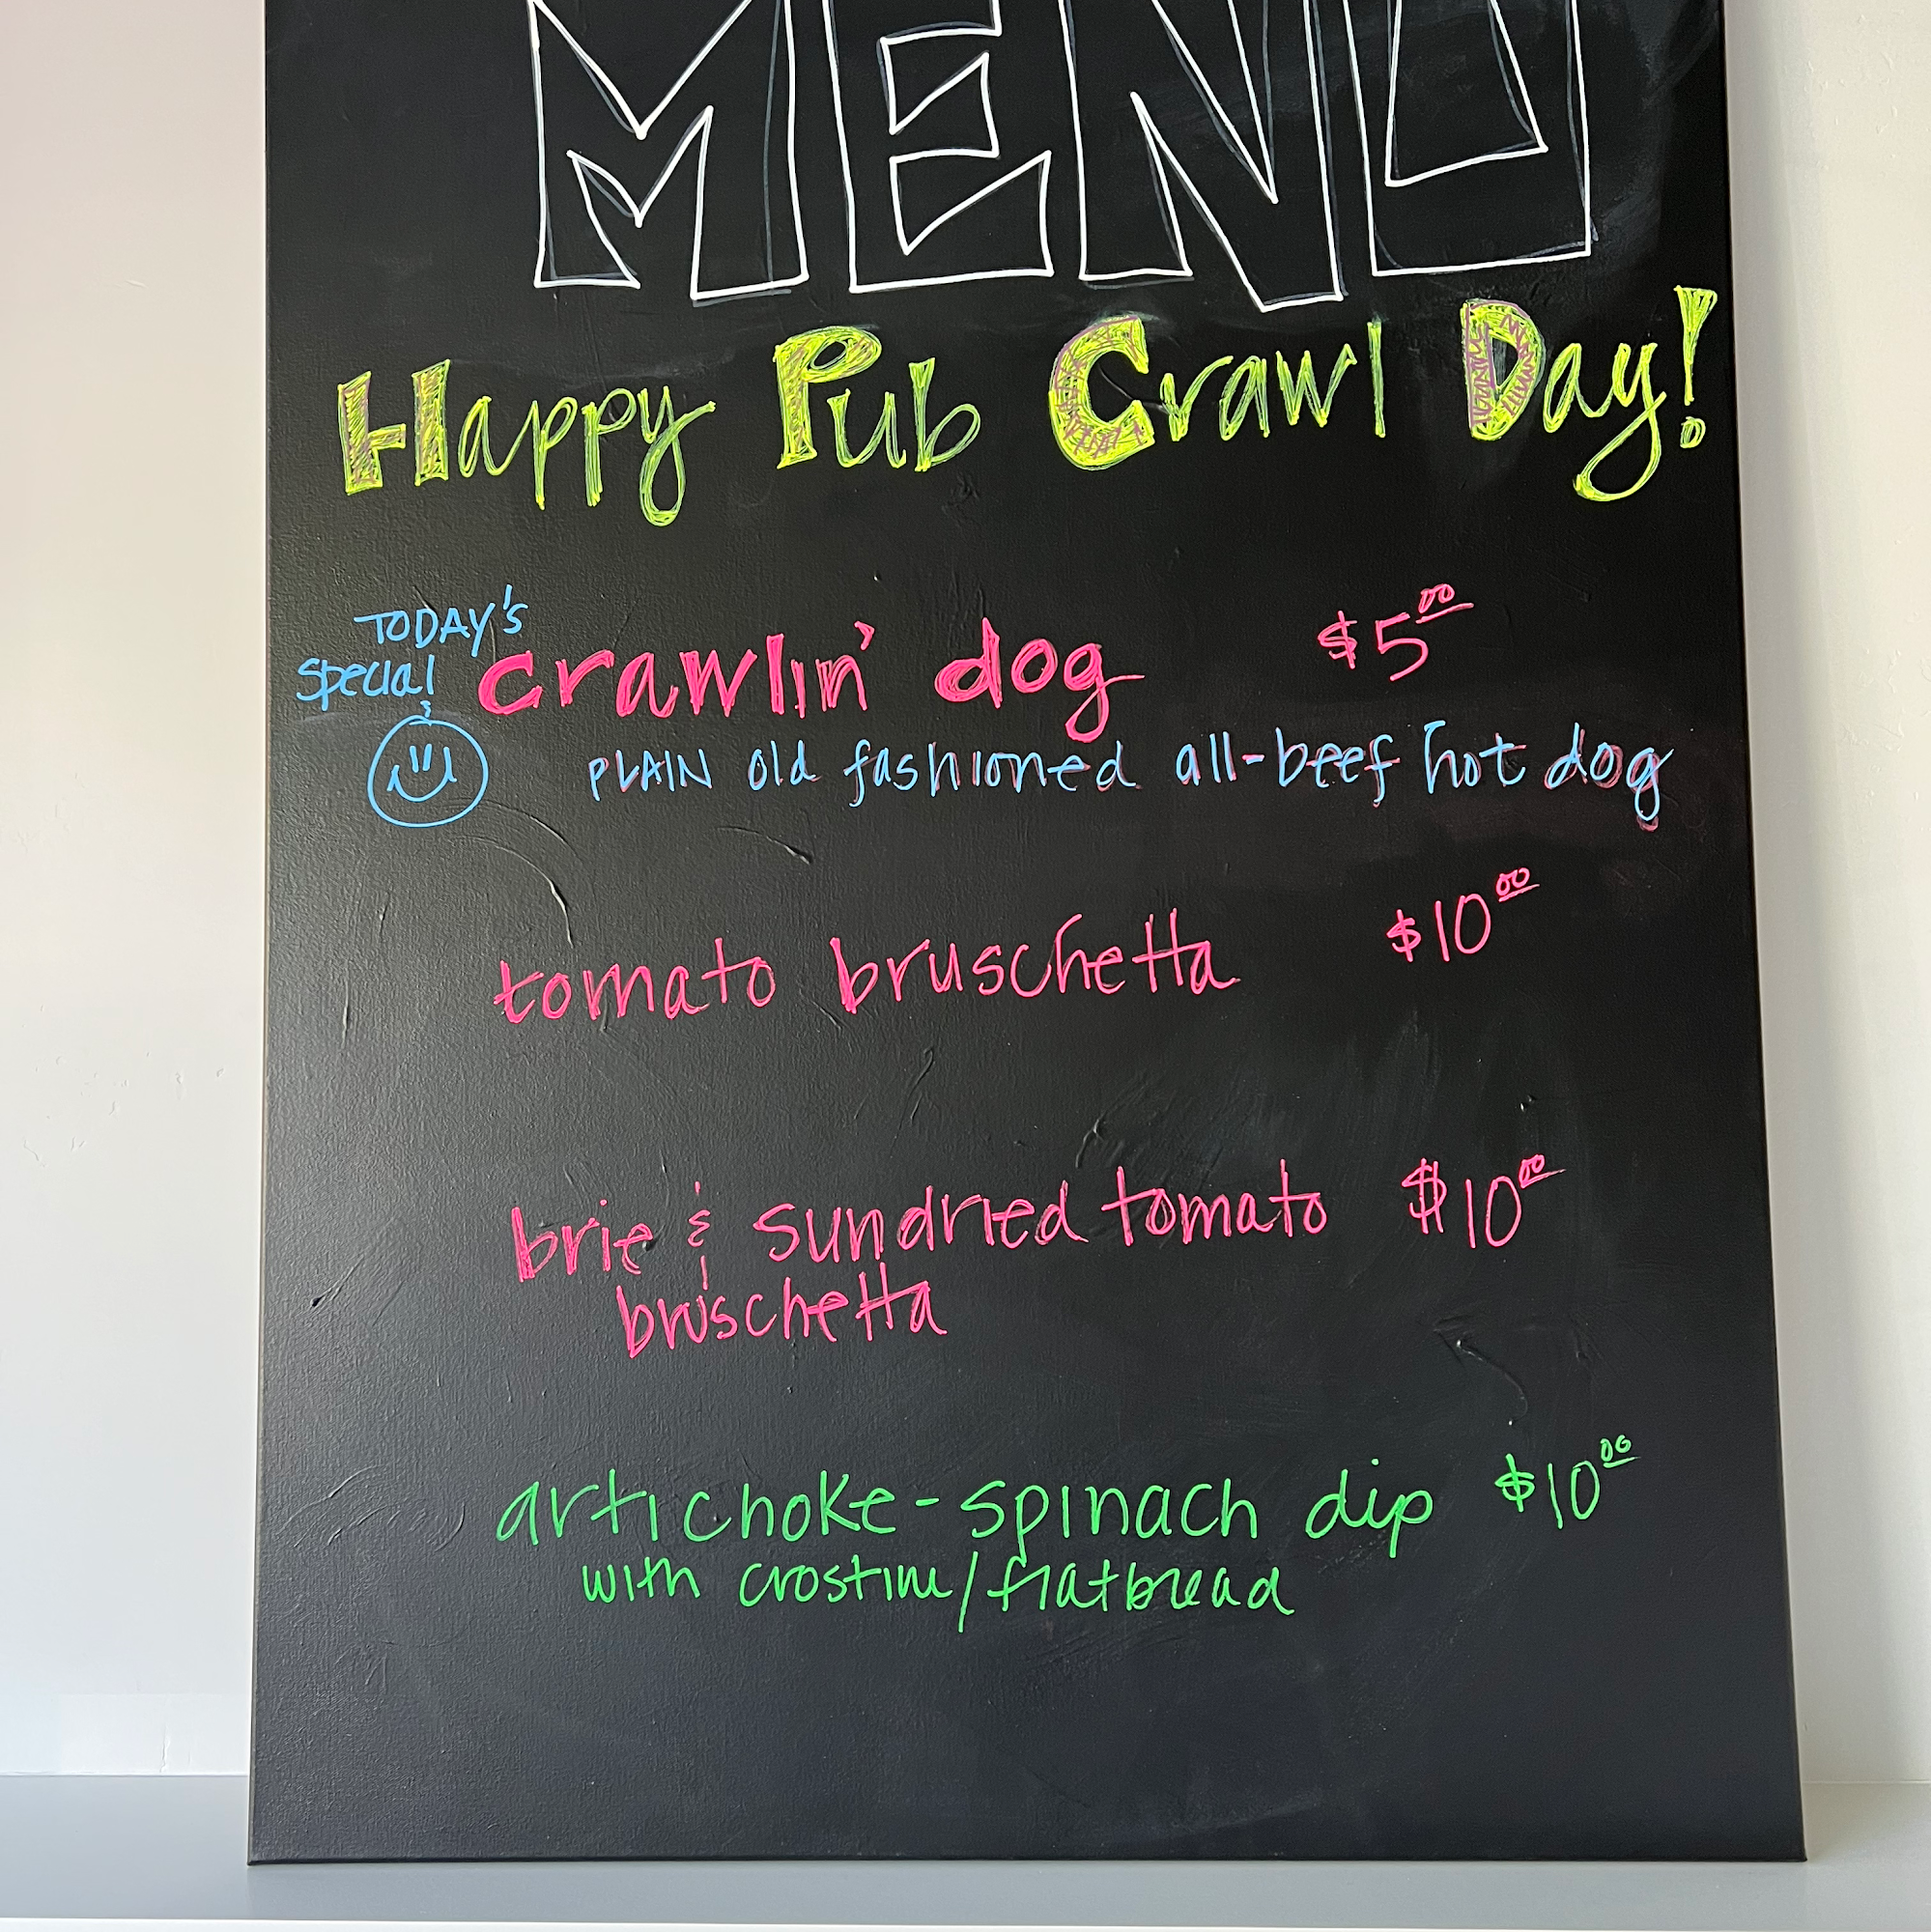 MENU
Happy Pub Crawl Day!
TODAY's
special
crawlin' dog $5.00
PLAIN old fashioned all-beef hot dog
tomato bruschetta $10.00
brie & sundried tomato $10.00
bruschetta
artichoke-spinach dip $10.00
with crostini/flatbread